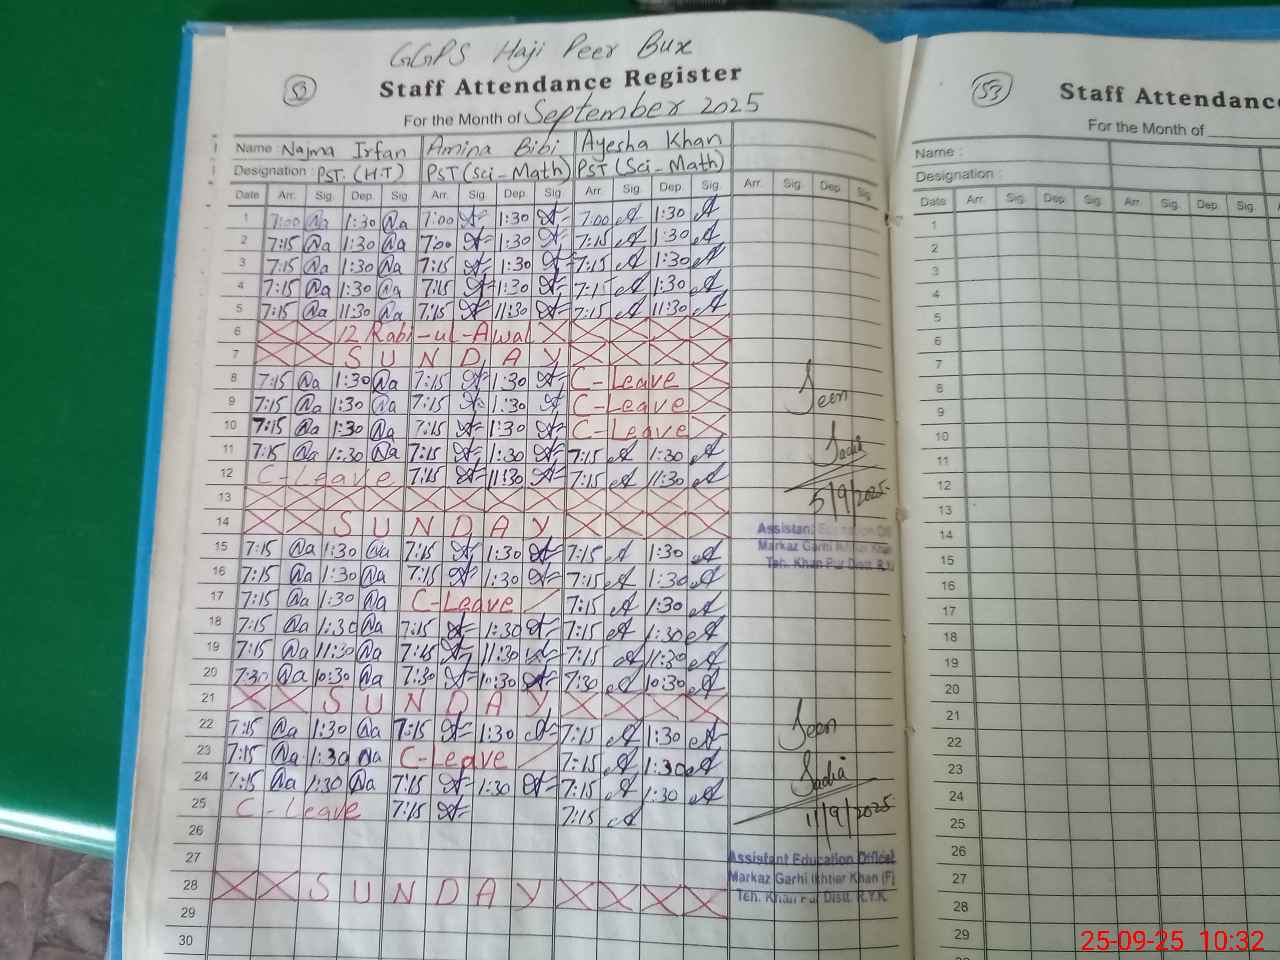 GGPS Haji Peer Bux
53 Staff Attendance Register
For the Month of September 2025
Name : Najma Irfan Amina Bibi Ayesha Khan
Designation : PST. (H.T) PST (Sci-Math) PST (Sci-Math)
Date Arr. Sig. Dep. Sig. Arr. Sig. Dep. Sig. Arr. Sig. Dep. Sig. Arr. Sig. Dep. Sig.
1 7:00 Na 1:30 Na 7:00 1:30 7:00 A 1:30 A
2 7:15 Na 1:30 Na 7:00 1:30 7:15 A 1:30 A
3 7:15 Na 1:30 Na 7:15 1:30 7:15 A 1:30 A
4 7:15 Na 1:30 Na 7:15 1:30 7:15 A 1:30 A
5 7:15 Na 11:30 Na 7:15 11:30 7:15 A 11:30 A
6 12 Rabi-ul-Awal
7 SUNDAY
8 7:15 Na 1:30 Na 7:15 1:30 C-Leave
9 7:15 Na 1:30 Na 7:15 1:30 C-Leave
10 7:15 Na 1:30 Na 7:15 1:30 C-Leave
11 7:15 Na 1:30 Na 7:15 1:30 7:15 A 1:30 A
12 C-Leave 7:15 11:30 7:15 A 11:30 A
13
14 SUNDAY
15 7:15 Na 1:30 Na 7:15 1:30 7:15 A 1:30 A
16 7:15 Na 1:30 Na 7:15 1:30 7:15 A 1:30 A
17 7:15 Na 1:30 Na C-Leave 7:15 A 1:30 A
18 7:15 Na 1:30 Na 7:15 1:30 7:15 A 1:30 A
19 7:15 Na 11:30 Na 7:15 11:30 7:15 A 11:30 A
20 7:30 Na 10:30 Na 7:30 10:30 7:30 A 10:30 A
21 SUNDAY
22 7:15 Na 1:30 Na 7:15 1:30 7:15 A 1:30 A
23 7:15 Na 1:30 Na C-Leave 7:15 A 1:30 A
24 7:15 Na 1:30 Na 7:15 1:30 7:15 A 1:30 A
25 C-Leave 7:15 7:15 A
26
27
28 SUNDAY
29
30
Seen
Sadia
5/9/2025
Assistant Education Offi
Markaz Garhi Ikhtiar Khan
Teh. Khan Pur Distt. R.Y.
Seen
Sadia
11/9/2025
Assistant Education Officer
Markaz Garhi Ikhtiar Khan (F)
Teh. Khan Pur Distt. R.Y.K.
53 Staff Attendanc
For the Month of
Name :
Designation :
Date Arr. Sig. Dep. Sig. Arr. Sig. Dep. Sig.
1
2
3
4
5
6
7
8
9
10
11
12
13
14
15
16
17
18
19
20
21
22
23
24
25
26
27
28
29
25-09-25 10:32